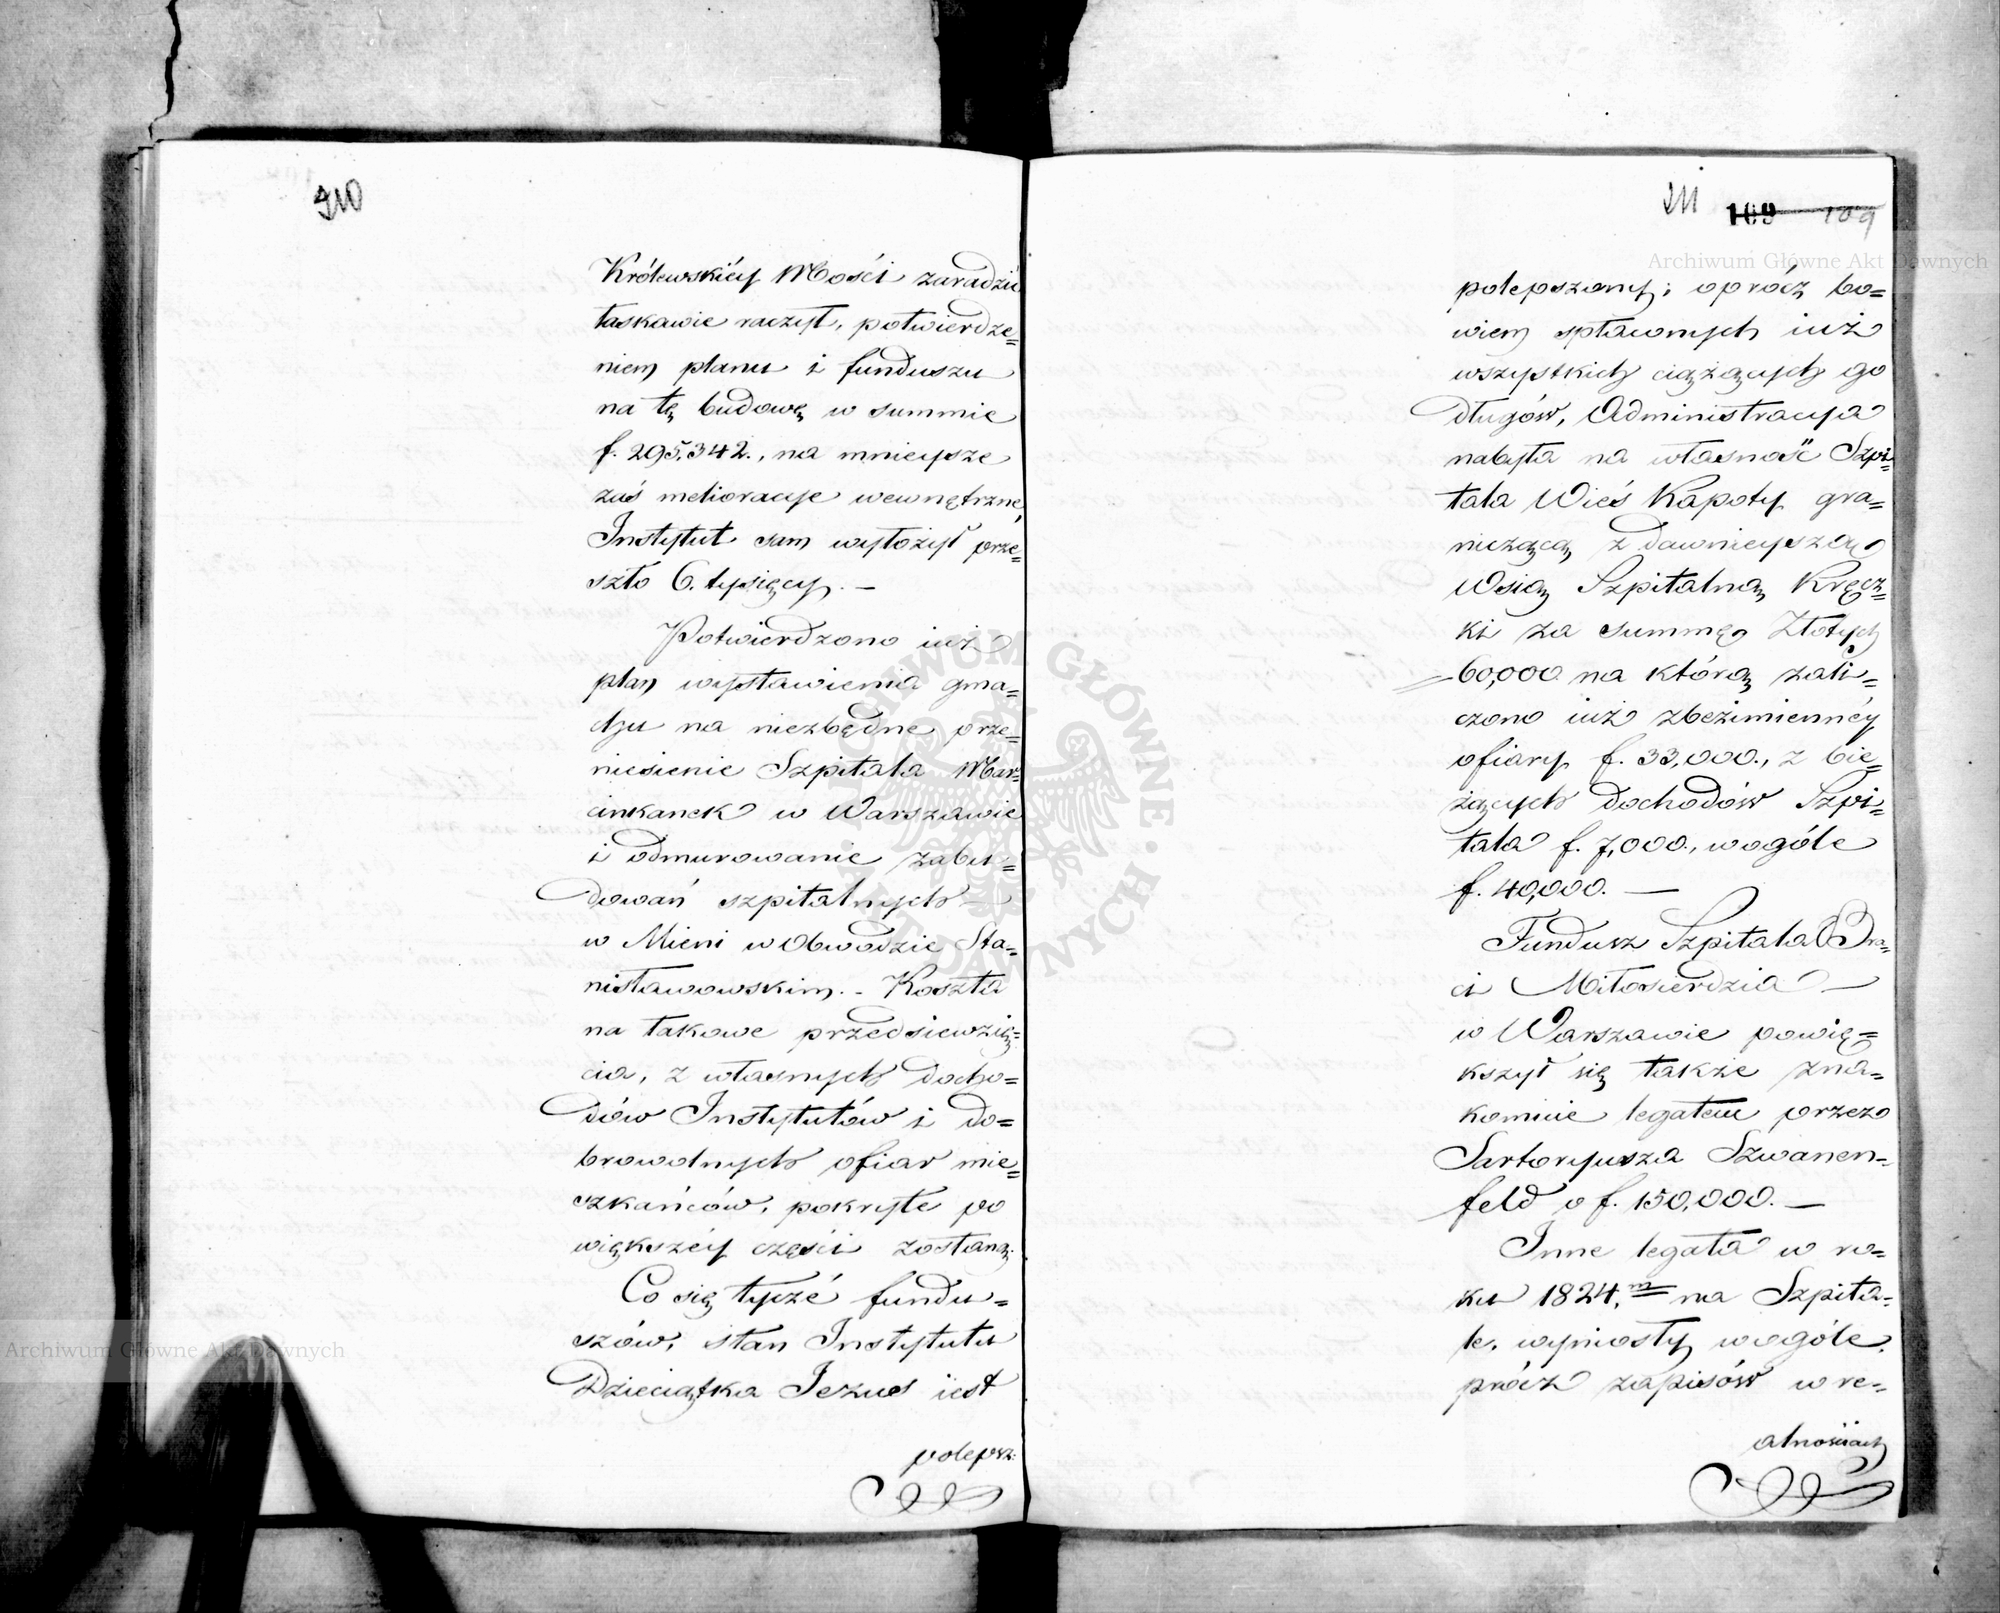 210
Królewskiéy Mości zaradzić
łaskawie raczył, potwierdze=
niem planu i funduszu
na tę budowę w summie
f. 295,342., na mnieysze
zaś melioracye wewnętrzne,
Instytut sam wyłożył prze=
szło 6. tysięcy. —
Potwierdzono iuż
plan wystawienia gma=
chu na niezbędne prze=
niesienie Szpitala Mar=
cinkanek w Warszawie
i odmurowanie zabu=
dowań szpitalnych —
w Mieni w Obwodzie Sta=
nisławowskim. - Koszta
na takowe przedsiewzię=
cia, z własnych docho=
dów Instytutów i do=
browolnych ofiar mie=
szkańców, pokryte po
większéy części zostaną.
Co się tycze fundu=
szów, stan Instytutu
Dzieciątka Jezus iest
polepsz.
211 109 109
polepszony; oprócz bo=
wiem spłaconych iuż
wszystkich ciążących go
długów, Administracya
nabyła na własność Szpi=
tala Wieś Kapoty gra=
niczącą z dawnieyszą
Wsią Szpitalną Kręcz=
ki za summę Złotych
60,000 na którą zali=
czono iuż zbezimiennéy
ofiary f. 33,000., z bie=
żących dochodów Szpi=
tala f. 7,000., wogóle
f. 40,000. —
Fundusz Szpitala Bra=
ci Miłosierdzia —
w Warszawie powię=
kszył się także zna=
komicie legatem przez
Sartoryusza Szwanen=
feld o f. 150,000. —
Inne legata w ro=
ku 1824.m na Szpita=
le, wyniosły wogóle,
prócz zapisów w re=
alnościach
Archiwum Główne Akt Dawnych
Archiwum Główne Akt Dawnych
ARCHIWUM GŁÓWNE AKT DAWNYCH